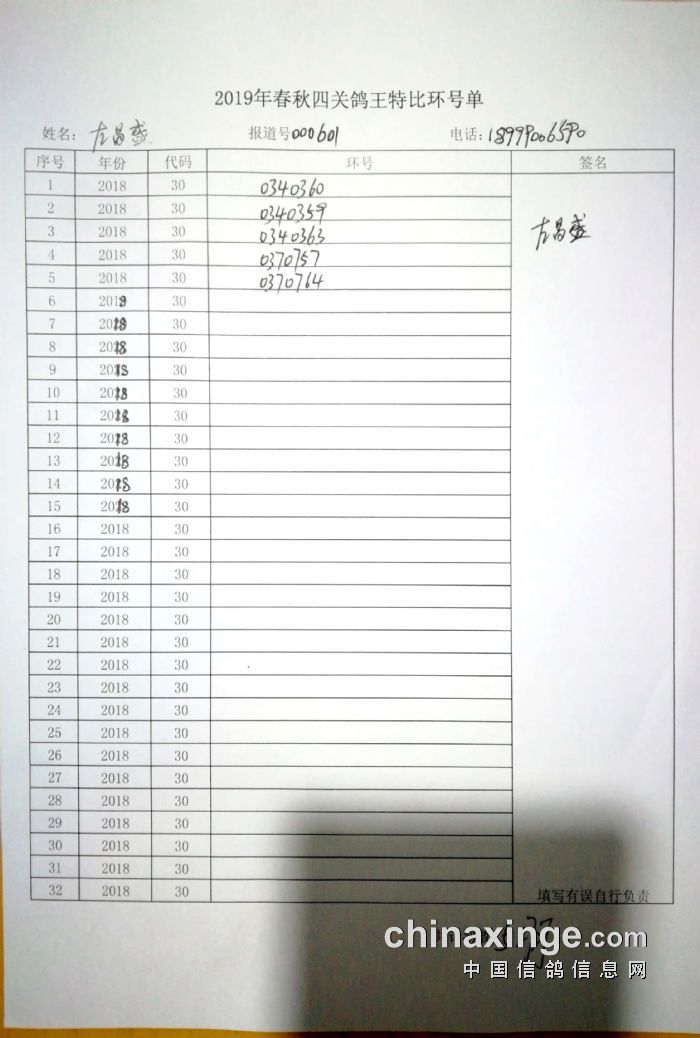 2019年春秋四关鸽王特比环号单
姓名: 左昌盛 报道号000601 电话: 18999006590
序号 年份 代码 环号 签名
1 2018 30 0340360
2 2018 30 0340359
3 2018 30 0340363
4 2018 30 0370757
5 2018 30 0370764
左昌盛
6 2019 30
7 2018 30
8 2018 30
9 2018 30
10 2018 30
11 2018 30
12 2018 30
13 2018 30
14 2018 30
15 2018 30
16 2018 30
17 2018 30
18 2018 30
19 2018 30
20 2018 30
21 2018 30
22 2018 30
23 2018 30
24 2018 30
25 2018 30
26 2018 30
27 2018 30
28 2018 30
29 2018 30
30 2018 30
31 2018 30
32 2018 30
填写有误自行负责
chinaxinge.com
中国信鸽信息网